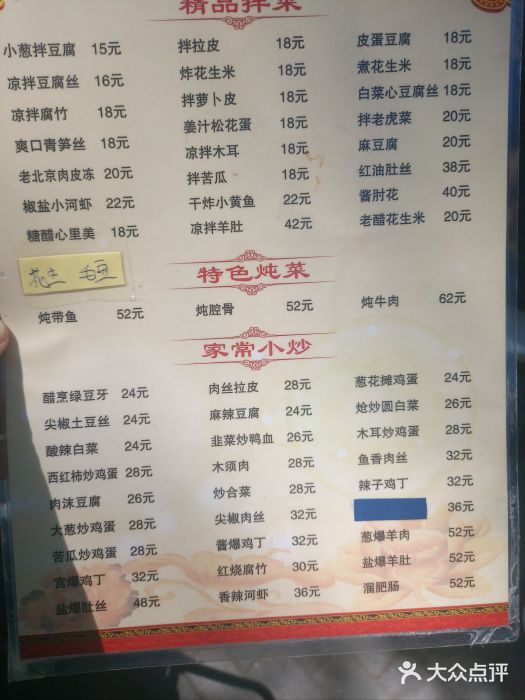 精品拌菜
小葱拌豆腐 15元 拌拉皮 18元 皮蛋豆腐 18元
凉拌豆腐丝 16元 炸花生米 18元 煮花生米 18元
凉拌腐竹 18元 拌萝卜皮 18元 白菜心豆腐丝 18元
爽口青笋丝 18元 姜汁松花蛋 18元 拌老虎菜 20元
老北京肉皮冻 20元 凉拌木耳 18元 麻豆腐 20元
椒盐小河虾 22元 拌苦瓜 18元 红油肚丝 38元
糖醋心里美 18元 干炸小黄鱼 22元 酱肘花 40元
凉拌羊肚 42元 老醋花生米 20元
花生 毛豆
特色炖菜
炖带鱼 52元 炖腔骨 52元 炖牛肉 62元
家常小炒
醋烹绿豆芽 24元 肉丝拉皮 28元 葱花摊鸡蛋 24元
尖椒土豆丝 24元 麻辣豆腐 24元 炝炒圆白菜 26元
酸辣白菜 24元 韭菜炒鸭血 26元 木耳炒鸡蛋 28元
西红柿炒鸡蛋 28元 木须肉 28元 鱼香肉丝 32元
肉沫豆腐 26元 炒合菜 28元 辣子鸡丁 32元
大葱炒鸡蛋 28元 尖椒肉丝 32元 36元
苦瓜炒鸡蛋 28元 酱爆鸡丁 32元 葱爆羊肉 52元
宫爆鸡丁 32元 红烧腐竹 30元 盐爆羊肚 52元
盐爆肚丝 48元 香辣河虾 36元 溜肥肠 52元
大众点评